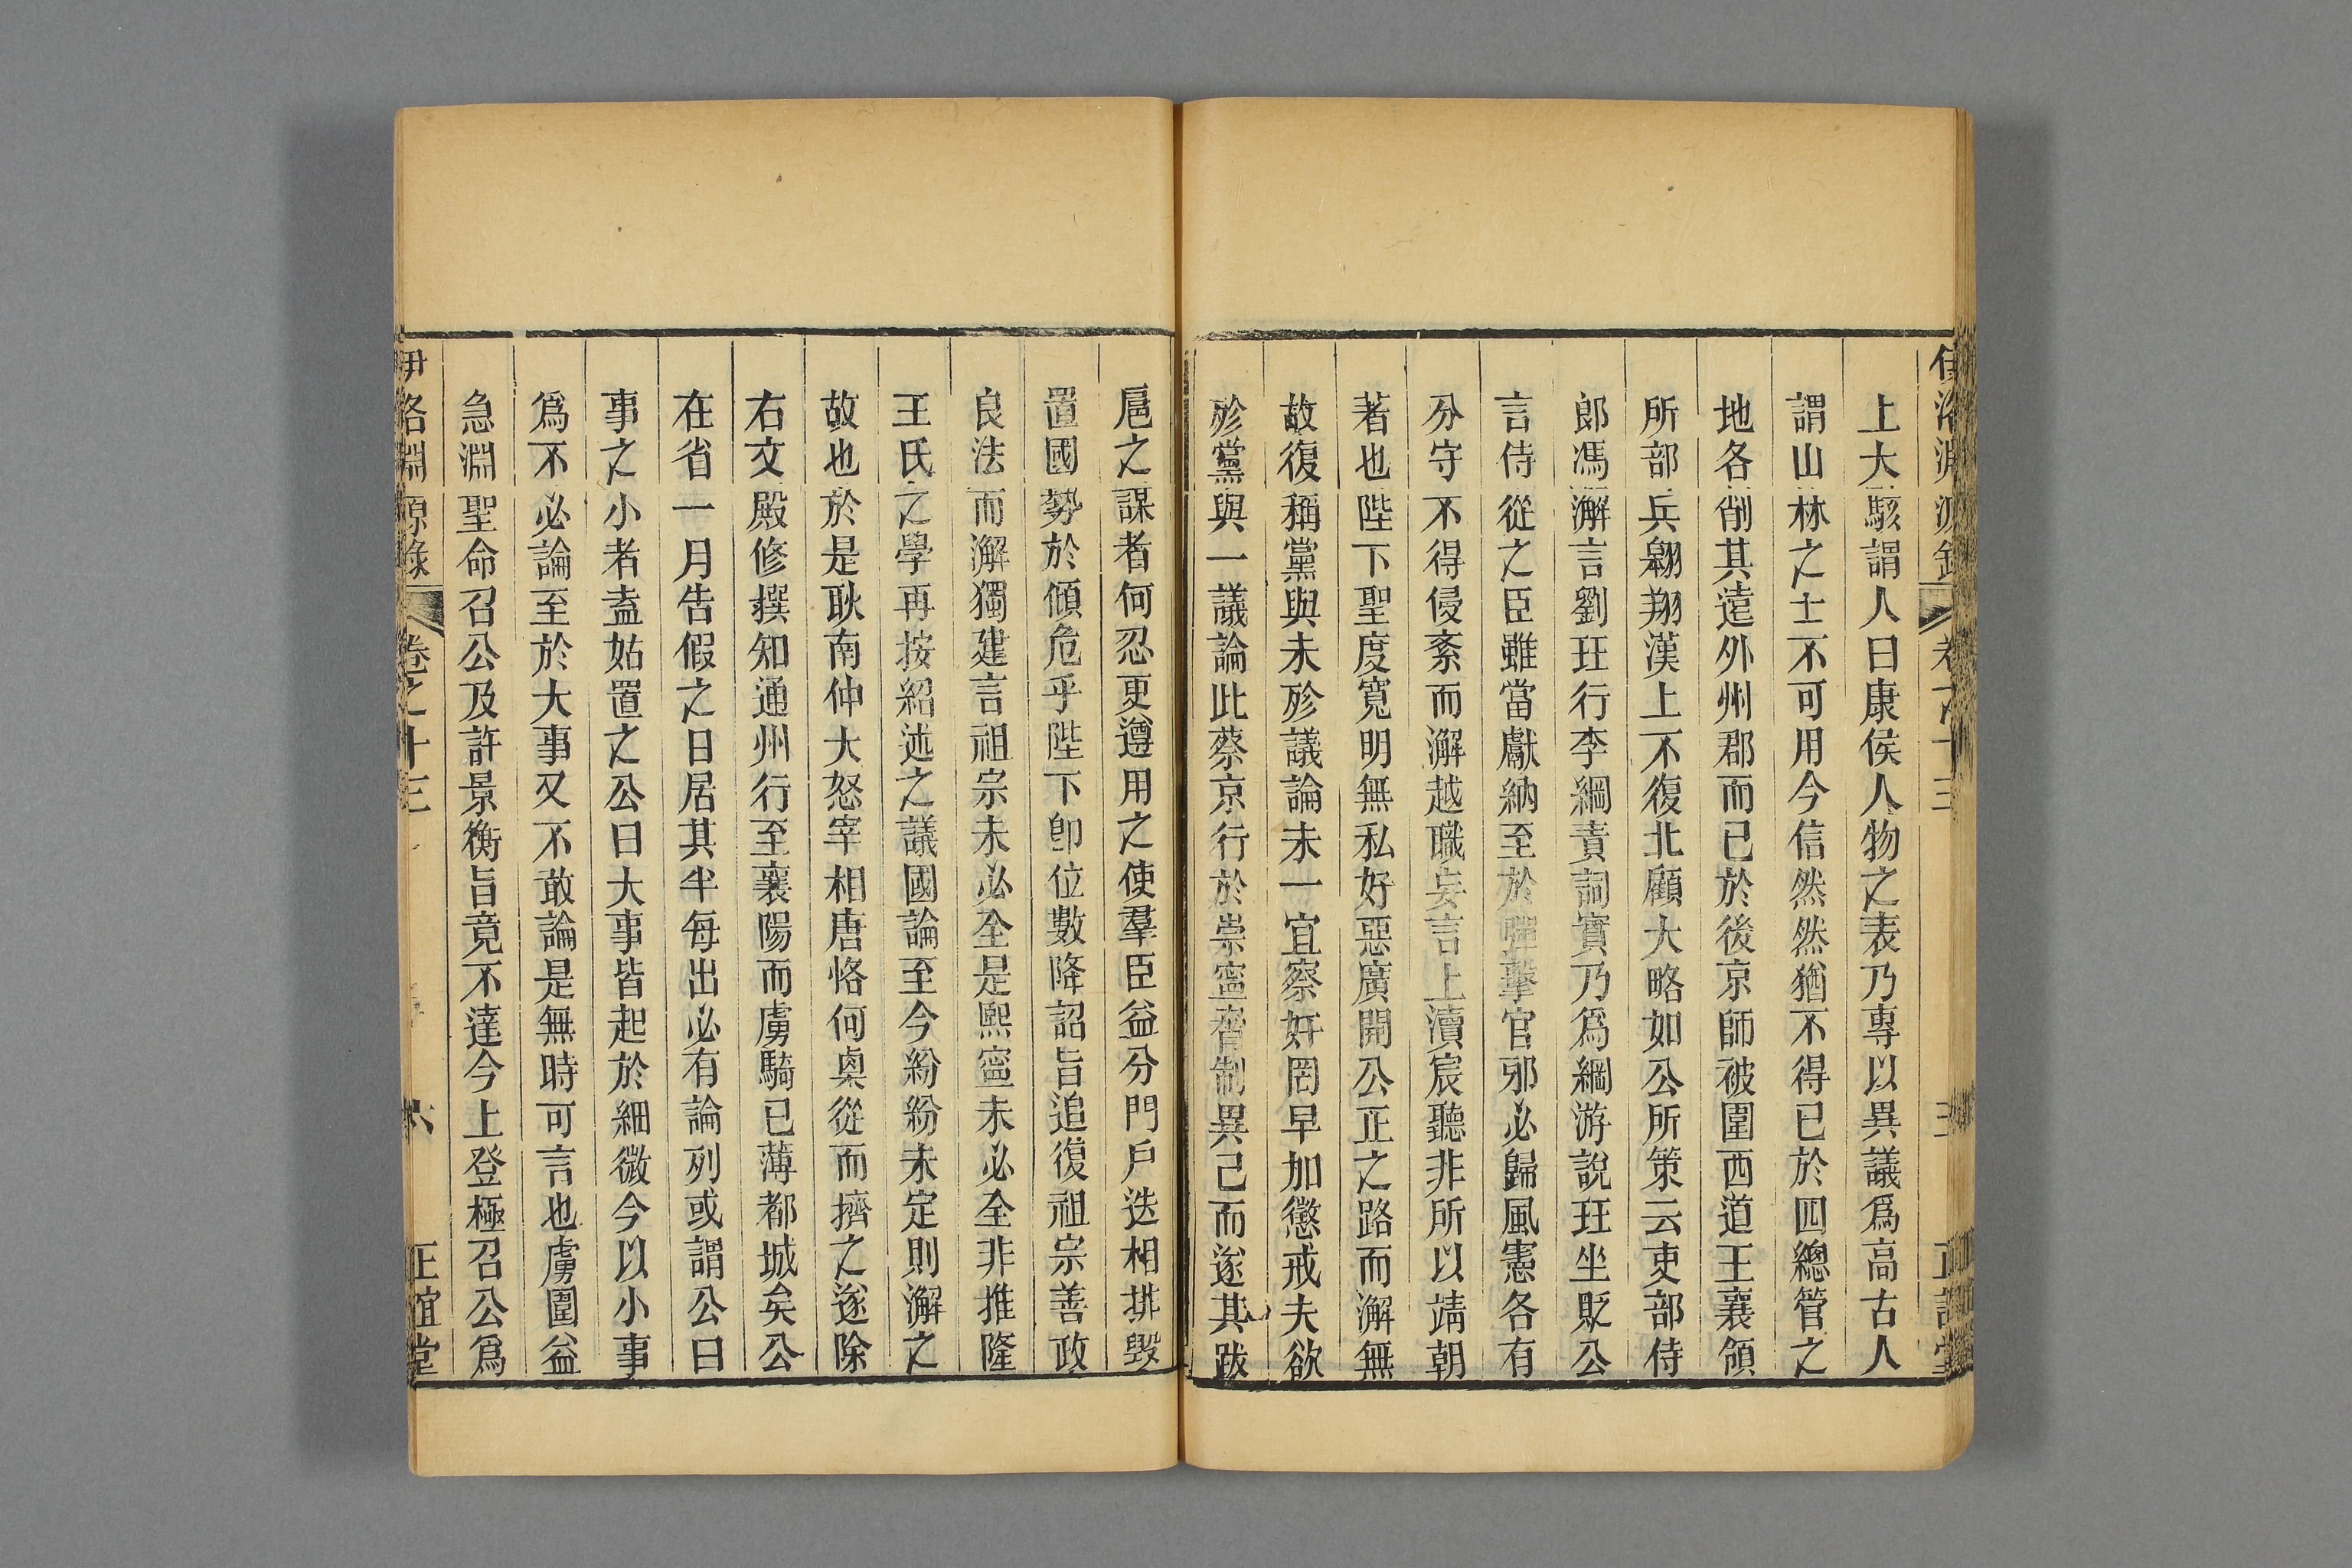 上大駭謂人曰康侯人物之表乃專以異議爲高古人
謂山林之士不可用今信然然猶不得已於四總管之
地各削其遠外州郡而已於後京師被圍西道王襄領
所部兵翱翔漢上不復北顧大略如公所策云吏部侍
郎馮澥言劉珏行李綱責詞實乃爲綱游說珏坐貶公
言侍從之臣雖當獻納至於彈擊官邪必歸風憲各有
分守不得侵紊而澥越職妄言上瀆宸聽非所以靖朝
著也陛下聖度寬明無私好惡廣開公正之路而澥無
故復稱黨與未殄議論未一宜察奸罔早加懲戒夫欲
殄黨與一議論此蔡京行於崇寧脅制異己而遂其跋
扈之謀者何忍更遵用之使羣臣益分門戶迭相排毀
置國勢於傾危乎陛下卽位數降詔旨追復祖宗善政
良法而澥獨建言祖宗未必全是熙寧未必全非推隆
王氏之學再按紹述之議國論至今紛紛未定則澥之
故也於是耿南仲大怒宰相唐恪何㮚從而擠之遂除
右文殿修撰知通州行至襄陽而虜騎已薄都城矣公
在省一月告假之日居其半每出必有論列或謂公曰
事之小者盍姑置之公曰大事皆起於細微今以小事
爲不必論至於大事又不敢論是無時可言也虜圍益
急淵聖命召公及許景衡旨竟不達今上登極召公爲
伊洛淵源錄 卷之十三 六 正誼堂